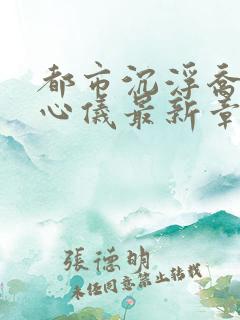 都市沉浮喬
心儀最新章
張德明
未經同意禁止轉載